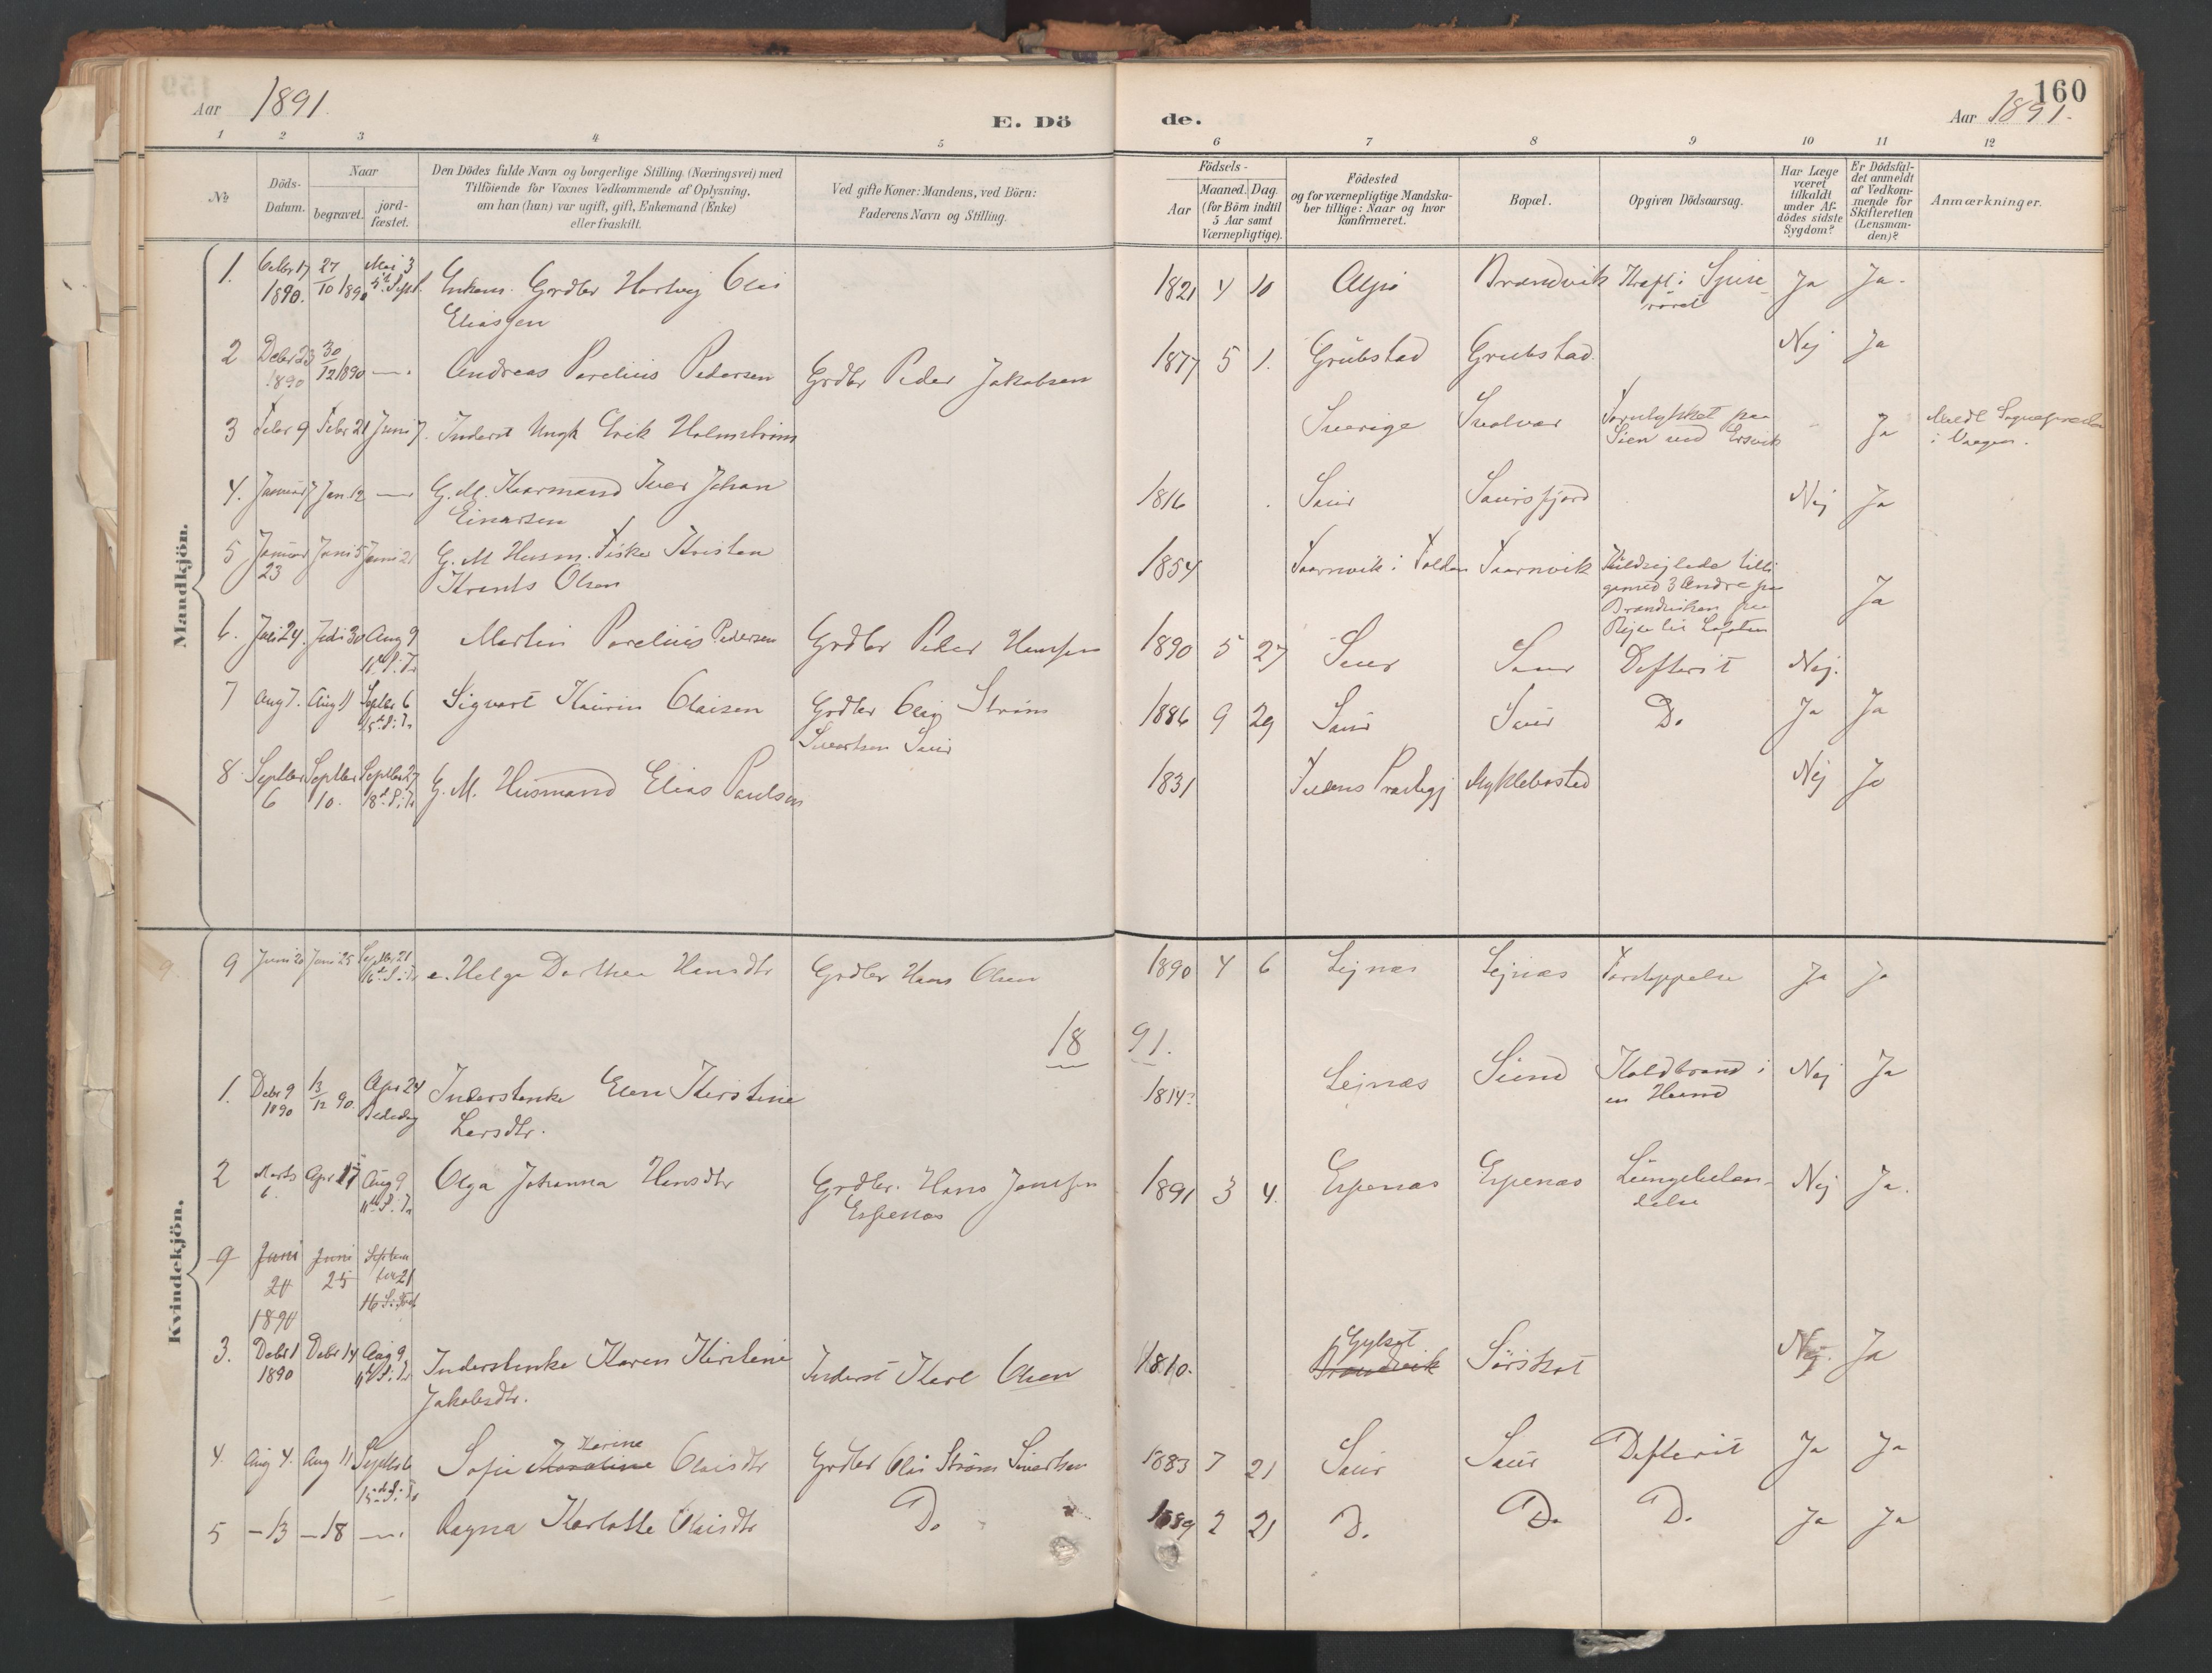 160
Aar 1891.
E. Dö
de.
Aar 1891.
1 2 3 4 5 6 7 8 9 10 11 12
No
Döds-
Datum.
Naar
begravet.
jord-
fæstet.
Den Dödes fulde Navn og borgerlige Stilling (Næringsvei) med
Tilföiende for Voxnes Vedkommende af Oplysning,
om han (hun) var ugift, gift, Enkemand (Enke)
eller fraskilt.
Ved gifte Koner: Mandens, ved Börn:
Faderens Navn og Stilling.
Födsels-
Aar
Maaned. Dag.
(for Börn indtil
5 Aar samt
Værnepligtige).
Födested
og for værnepligtige Mandska-
ber tillige: Naar og hvor
konfirmeret.
Bopæl.
Opgiven Dödsaarsag.
Har Læge
været
tilkaldt
under Af-
dödes sidste
Sygdom?
Er Dödsfal-
det anmeldt
af Vedkom-
mende for
Skifteretten
(Lensman-
den)?
Anmærkninger.
Mandkjön.
1. Octbr 17 1890. 27/10 1890 Mai 3 Enkem. Grdbr Hartvig Olai
Eliassen
1821 4 10 Alsö Brandvik Kræft i Spise-
röret Ja Ja.
2 Debr 23 1890 30/12 1890 —. Andreas Parelius Pedersen Grdbr Peder Jakobsen 1877 5 1. Grübstad Grubstad. Nej Ja
3 Febr 9 Febr 21 Juni 7. Inderst Ungk Erik Holmström Sverige Svolvær Forulykket paa
Sjöen ved Ersvik Ja
i Vaagen.
4. Januar 7 Jan. 12 — G. M. Kaarmand Iver Johan
Einarsen
1816 Saur Saursfjord Nej Ja
5 Januar 23 Juni 5 Juni 21 G. M. Husm. Fisker Kristen
Krants Olsen
1854 Taarnvik i Folden Taarnvik Kuldsejlede tilli
gemed 3 Andre paa
Brandviken paa
Rejse til Lofoten Ja
6. Juli 24. Juli 30 Aug 9 Martin Parelius Pedersen Grdbr Peder Hansen 1890 5 27 Saur Saur Difterit Nej.
7 Aug 7. Aug 11 Septbr 6 Sigvart Kaurin Olaisen Grdbr Olai Ström
Sivertsen Saur
1886 9 29 Saur Saur Do Ja Ja
8 Septbr 6 Septbr 10. Septbr 27 G. M. Husmand Elias Paulsen 1831 Myklebostad Nej Ja
9. 9 Juni 20 Juni 25 Septbr 21 e. Helga Dorthea Hansdtr Grdbr Hans Olsen 1890 4 6 Lejnæs Lejnæs Forstoppelse Ja Ja
Kvindekjön.
18 91.
1. Debr 9 1890 13/12 90. Apr 24 Bededag Inderstenke Elen Kirstine
Larsdtr.
1814? Lejnæs Sund Koldbrand i
en Haand Nej Ja
2 Marts 6. Apr 17 Aug 9 Olga Johanna Hansdtr Grdbr. Hans Jensen
Espenæs
1891 3 4. Espenæs Espenæs Lungebetæn-
delse Nej Ja.
9 Juni 20 1890 Juni 25 Septem
ber 21
3. Debr 1 1890 Debr 14 Aug 9 Inderstenke Karen Kirstine
Jakobsdtr.
Inderst Karl Olsen 1810. Brandvik Sörskot Nej. Ja
4. Aug 4. Aug 11 Septbr 6 Sofie Karoline Karine Olaisdtr Grdbr Olai Ström Sivertsen 1883 7 21 Saur Saur Difterit Ja Ja
5 — 13 — 18 —. Ragna Karlotte Olaisdtr Do 1889 2 21 Do Do Do Ja Ja